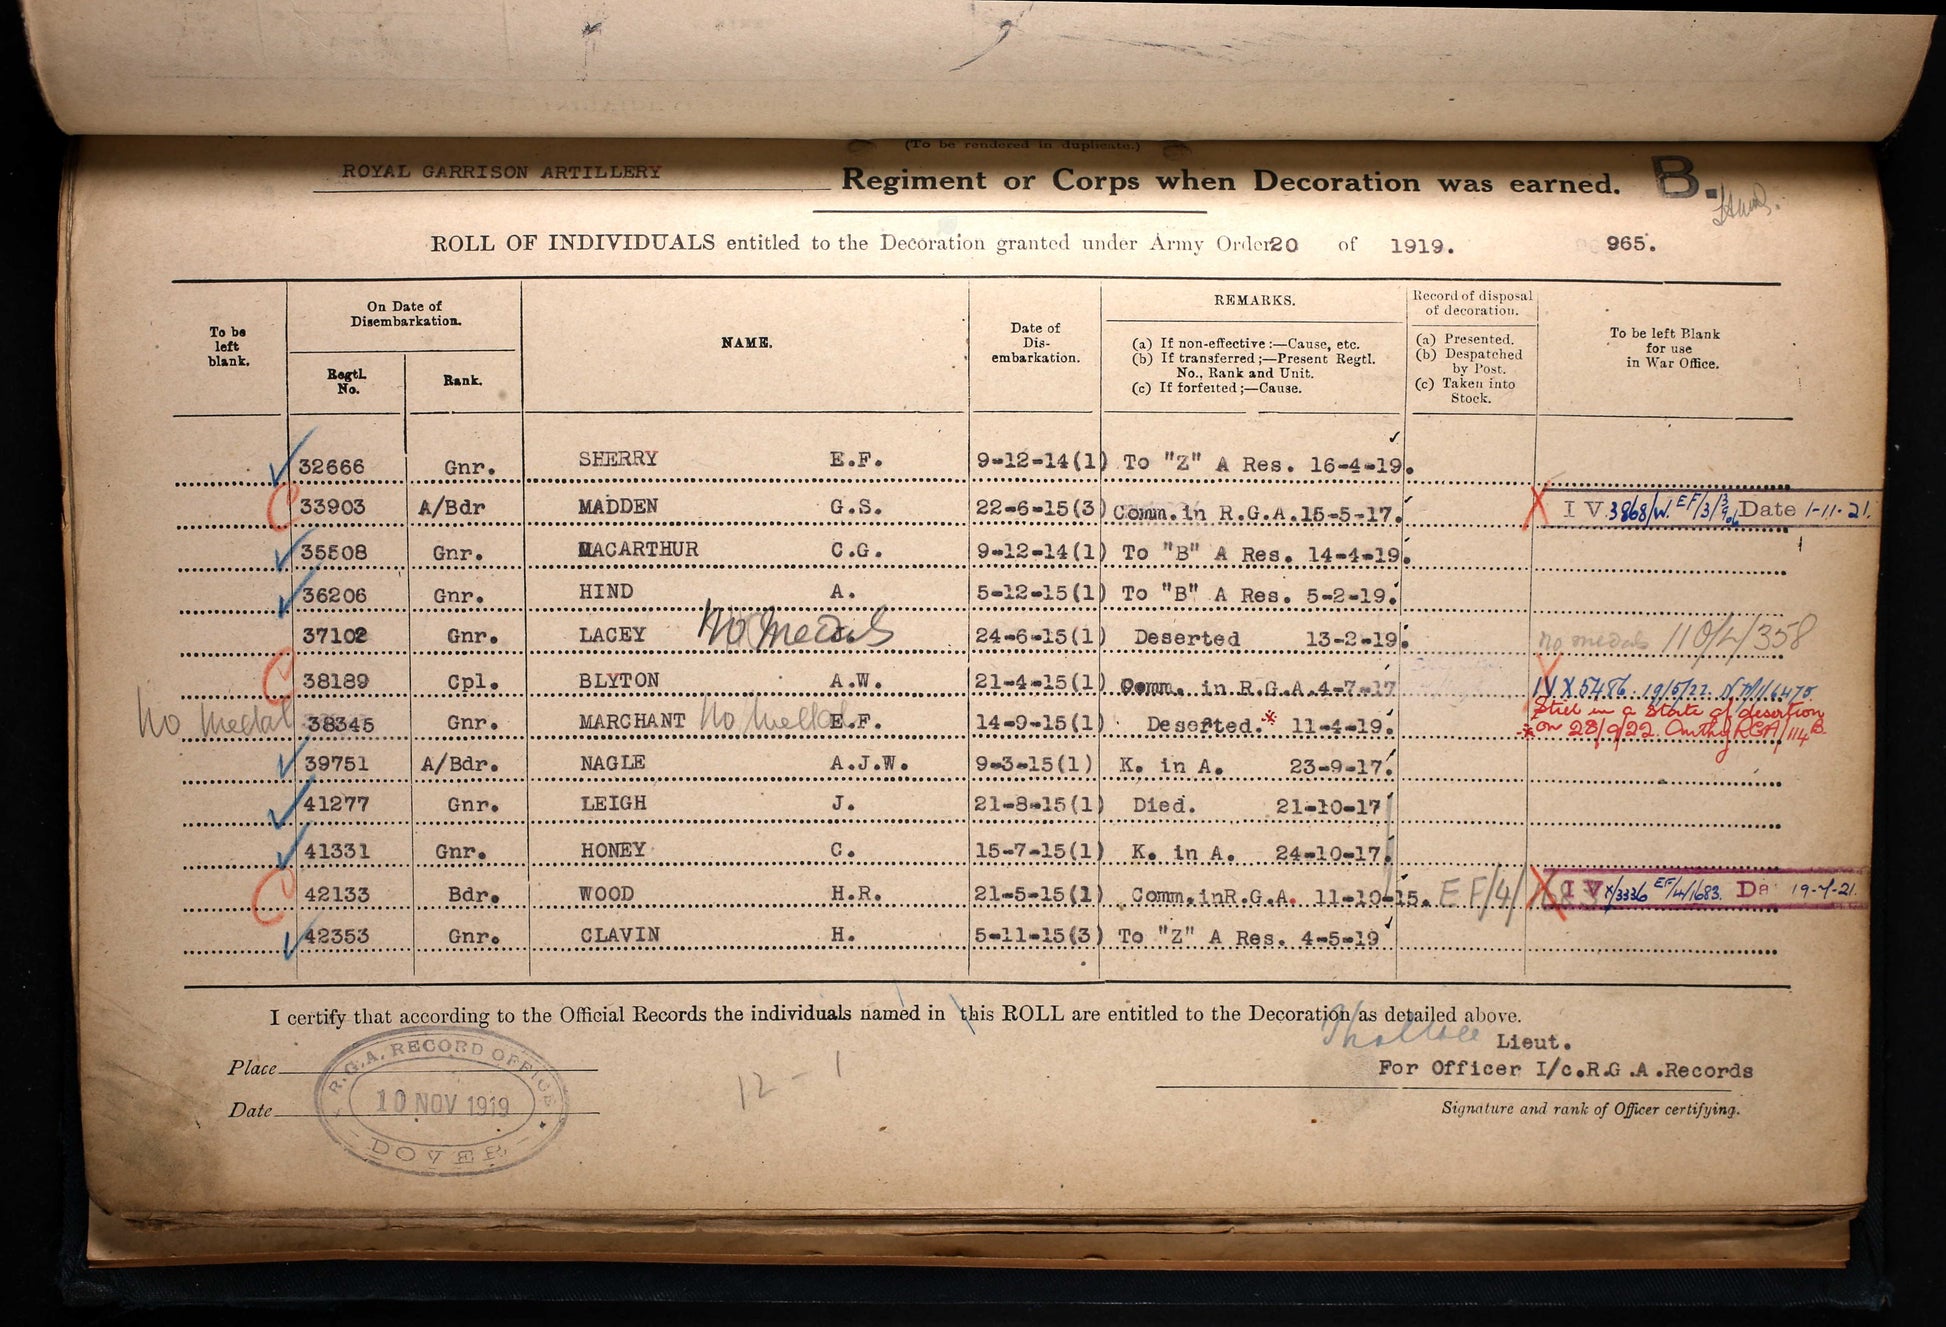 (To be rendered in duplicate.)
ROYAL GARRISON ARTILLERY Regiment or Corps when Decoration was earned. B.
ROLL OF INDIVIDUALS entitled to the Decoration granted under Army Order 20 of 1919. 965.
To be left blank.
On Date of Disembarkation.
Regtl. No.
Rank.
NAME.
Date of Dis-embarkation.
REMARKS.
(a) If non-effective:—Cause, etc.
(b) If transferred;—Present Regtl. No., Rank and Unit.
(c) If forfeited;—Cause.
Record of disposal of decoration.
(a) Presented.
(b) Despatched by Post.
(c) Taken into Stock.
To be left Blank for use in War Office.
32666 Gnr. SHERRY E.F. 9-12-14(1) To "Z" A Res. 16-4-19.
33903 A/Bdr MADDEN G.S. 22-6-15(3) Comm.in R.G.A.15-5-17. I V 3868/W. Date 1-11-21.
35508 Gnr. MACARTHUR C.G. 9-12-14(1) To "B" A Res. 14-4-19.
36206 Gnr. HIND A. 5-12-15(1) To "B" A Res. 5-2-19.
37102 Gnr. LACEY No medals 24-6-15(1) Deserted 13-2-19. No medals 110/4/358
38189 Cpl. BLYTON A.W. 21-4-15(1) Comm. in R.G.A.4-7-17 IV X 5486. 19/5/22.
No medal 38345 Gnr. MARCHANT No medal E.F. 14-9-15(1) Deserted.* 11-4-19. Still in a state of desertion
* on 28/9/22. Authy RGA/114 B.
39751 A/Bdr. NAGLE A.J.W. 9-3-15(1) K. in A. 23-9-17.
41277 Gnr. LEIGH J. 21-8-15(1) Died. 21-10-17
41331 Gnr. HONEY C. 15-7-15(1) K. in A. 24-10-17.
42133 Bdr. WOOD H.R. 21-5-15(1) Comm.inR.G.A. 11-10-15. EF/4/ I V X/3336 EF/4/1683. Da 19-4-21.
42353 Gnr. CLAVIN H. 5-11-15(3) To "Z" A Res. 4-5-19
I certify that according to the Official Records the individuals named in this ROLL are entitled to the Decoration as detailed above.
Lieut.
Place
For Officer I/c.R.G.A.Records
Date
Signature and rank of Officer certifying.
R.G.A. RECORD OFFICE
10 NOV 1919
DOVER
12 - 1